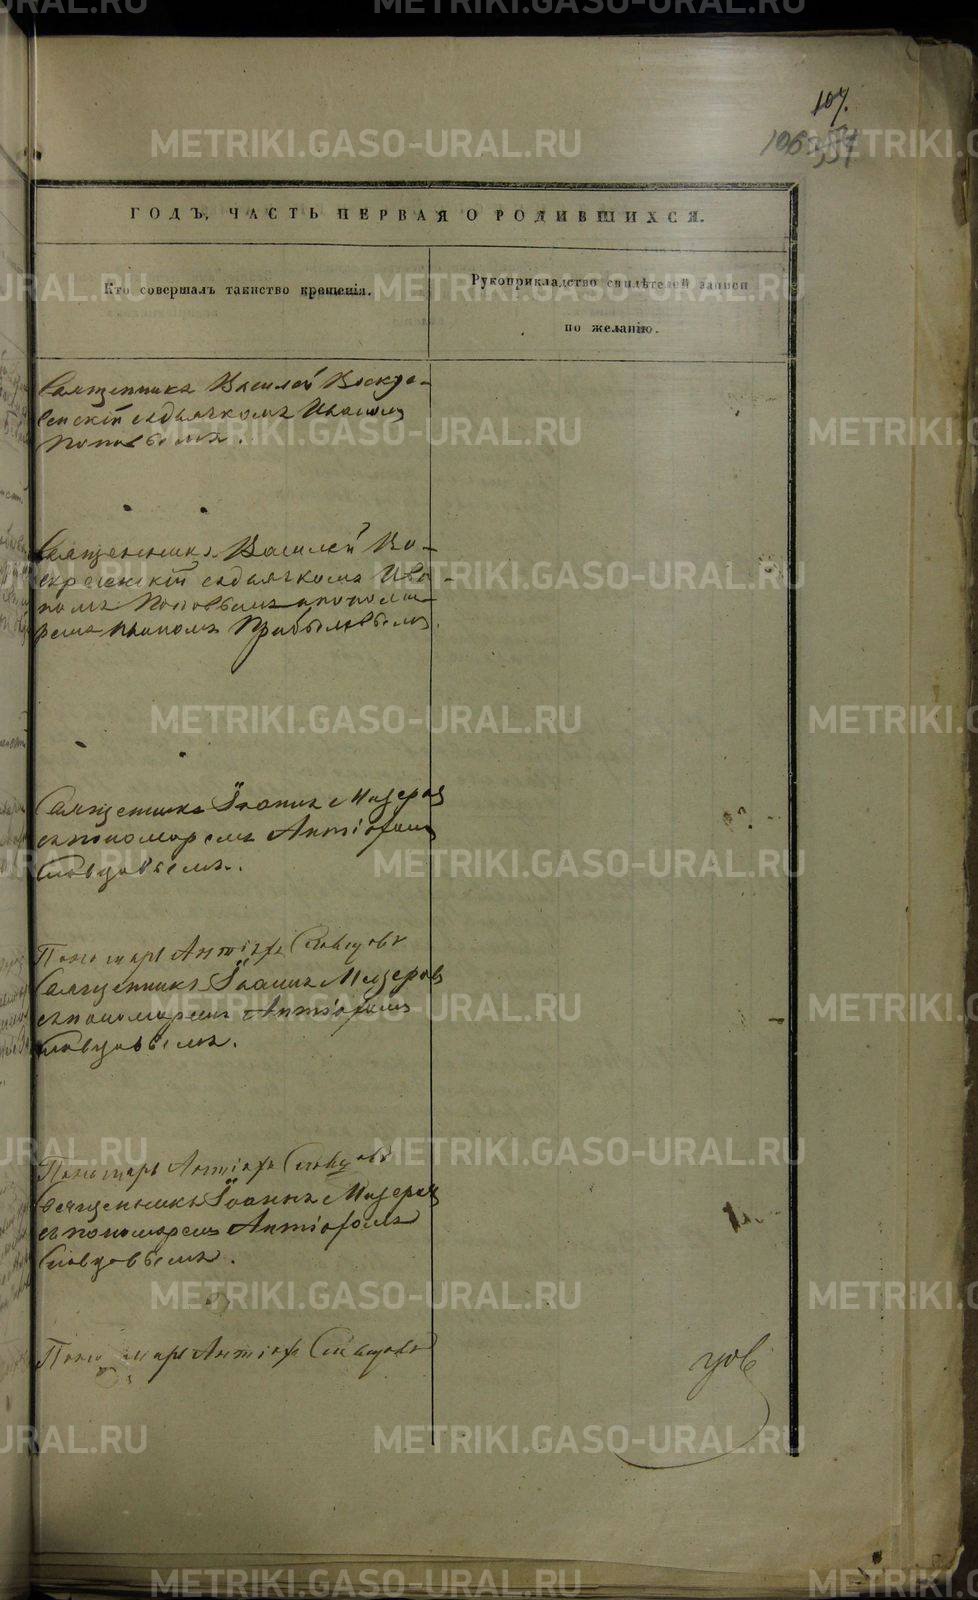 107.
106
351
ГОДЪ, ЧАСТЬ ПЕРВАЯ О РОДИВШИХСЯ.
Кто совершалъ таинство крещенія.
Рукоприкладство свидѣтелей записи
по желанію.
Священникъ Василей Воскре-
сенскій съ дьячкомъ Иваномъ
Поповымъ.
Священникъ Василей Во-
скресенскій съ дьячкомъ Ива-
номъ Поповымъ и пономо-
ремъ Прибылевымъ.
Священникъ Іоаннъ Мизеровъ
съ пономаремъ Антіофомъ
Словцовымъ.
Пономарь Антіофъ Словцовъ
Священникъ Іоаннъ Мизеровъ
съ пономаремъ Антіофомъ
Словцовымъ.
Пономарь Антіофъ Словцовъ
Священникъ Іоаннъ Мизеровъ
съ пономаремъ Антіофомъ
Словцовымъ.
Пономарь Антіофъ Словцовъ
цов
METRIKI.GASO-URAL.RU